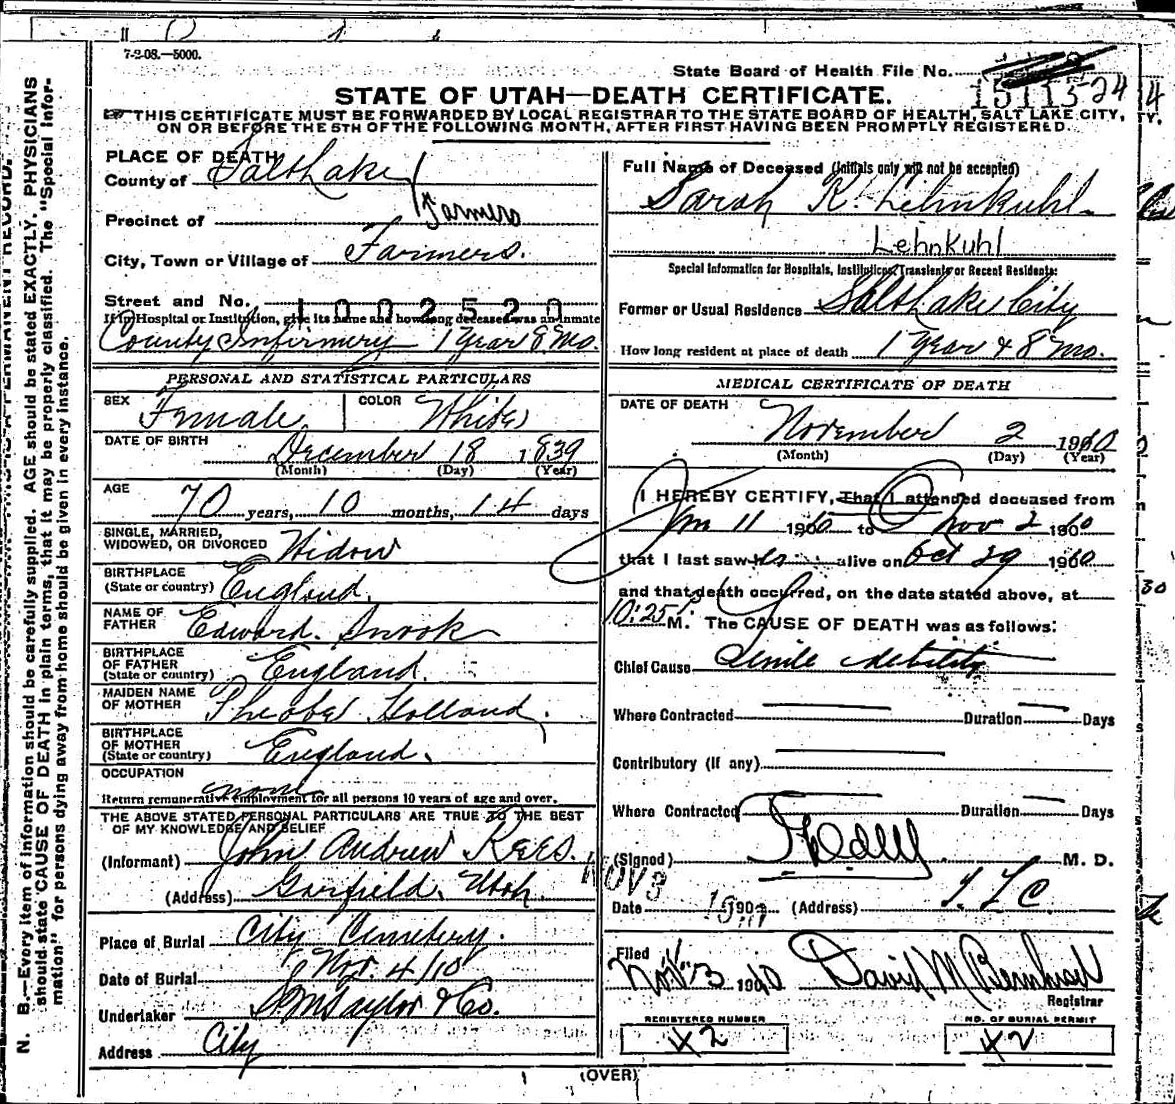 7-2-08.—5000.
State Board of Health File No.
15113-24
STATE OF UTAH—DEATH CERTIFICATE.
THIS CERTIFICATE MUST BE FORWARDED BY LOCAL REGISTRAR TO THE STATE BOARD OF HEALTH, SALT LAKE CITY,
ON OR BEFORE THE 5TH OF THE FOLLOWING MONTH, AFTER FIRST HAVING BEEN PROMPTLY REGISTERED.
N. B.—Every item of information should be carefully supplied. AGE should be stated EXACTLY. PHYSICIANS
should state CAUSE OF DEATH in plain terms, that it may be properly classified. The "Special Infor-
mation" for persons dying away from home should be given in every instance.
PLACE OF DEATH
County of Salt Lake
Precinct of Farmers
City, Town or Village of Farmers.
Street and No.
1002520
If in Hospital or Institution, give its name and how long deceased was an inmate
County Infirmery 1 Year 8 Mo.
PERSONAL AND STATISTICAL PARTICULARS
SEX Female COLOR White
DATE OF BIRTH December 18 1839
(Month) (Day) (Year)
AGE 70 years, 10 months, 14 days
SINGLE, MARRIED,
WIDOWED, OR DIVORCED Widow
BIRTHPLACE
(State or country) England.
NAME OF
FATHER Edward. Snook
BIRTHPLACE
OF FATHER
(State or country) England.
MAIDEN NAME
OF MOTHER Pheobe Holland.
BIRTHPLACE
OF MOTHER
(State or country) England.
OCCUPATION none
Return remunerative employment for all persons 10 years of age and over.
THE ABOVE STATED PERSONAL PARTICULARS ARE TRUE TO THE BEST
OF MY KNOWLEDGE AND BELIEF
(Informant) John Andrew Rees.
(Address) Garfield. Utah.
Place of Burial City Cemetery.
Date of Burial Nov. 4/10
Undertaker S. M. Taylor & Co.
Address City
Full Name of Deceased (Initials only will not be accepted)
Sarah K. Lehnkuhl
Lehnkuhl
Special Information for Hospitals, Institutions, Transients or Recent Residents:
Former or Usual Residence Salt Lake City
How long resident at place of death 1 Year & 8 Mo.
MEDICAL CERTIFICATE OF DEATH
DATE OF DEATH November 2 1910
(Month) (Day) (Year)
I HEREBY CERTIFY, That I attended deceased from
Jan 11 1910 to Nov 2 1910
that I last saw her alive on Oct 29 1910
and that death occurred, on the date stated above, at
10:25 P M. The CAUSE OF DEATH was as follows:
Chief Cause Senile debility
Where Contracted Duration Days
Contributory (If any)
Where Contracted Duration Days
(Signed) M. D.
NOV 3
Date 190 (Address) S. L. C.
Filed
Nov 3 1910 David M.
Registrar
REGISTERED NUMBER NO. OF BURIAL PERMIT
42 42
(OVER)